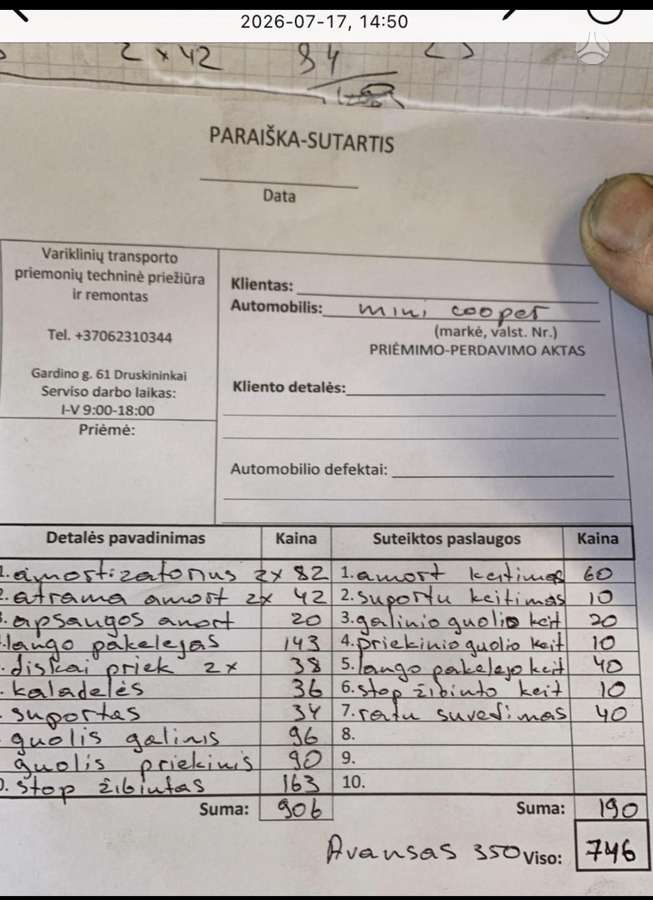 2026-07-17, 14:50
2 x 42 84
PARAIŠKA-SUTARTIS
Data
Variklinių transporto
priemonių techninė priežiūra
ir remontas
Tel. +37062310344
Gardino g. 61 Druskininkai
Serviso darbo laikas:
I-V 9:00-18:00
Priėmė:
Klientas:
Automobilis: mini cooper
(markė, valst. Nr.)
PRIĖMIMO-PERDAVIMO AKTAS
Kliento detalės:
Automobilio defektai:
Detalės pavadinimas Kaina Suteiktos paslaugos Kaina
1. amortizatorius 2x 82 1. amort keitimas 60
2. atrama amort 2x 42 2. suportu keitimas 10
. apsaugos amort 20 3. galinio guolio keit 20
. lango pakelejas 143 4. priekinio guolio keit 10
. diskai priek 2x 38 5. lango pakelejo keit 40
. kaladelės 36 6. stop žibinto keit 10
. suportas 34 7. ratu suvedimas 40
. guolis galinis 96 8.
guolis priekinis 90 9.
0. stop žibintas 163 10.
Suma: 906 Suma: 190
Avansas 350 Viso: 746